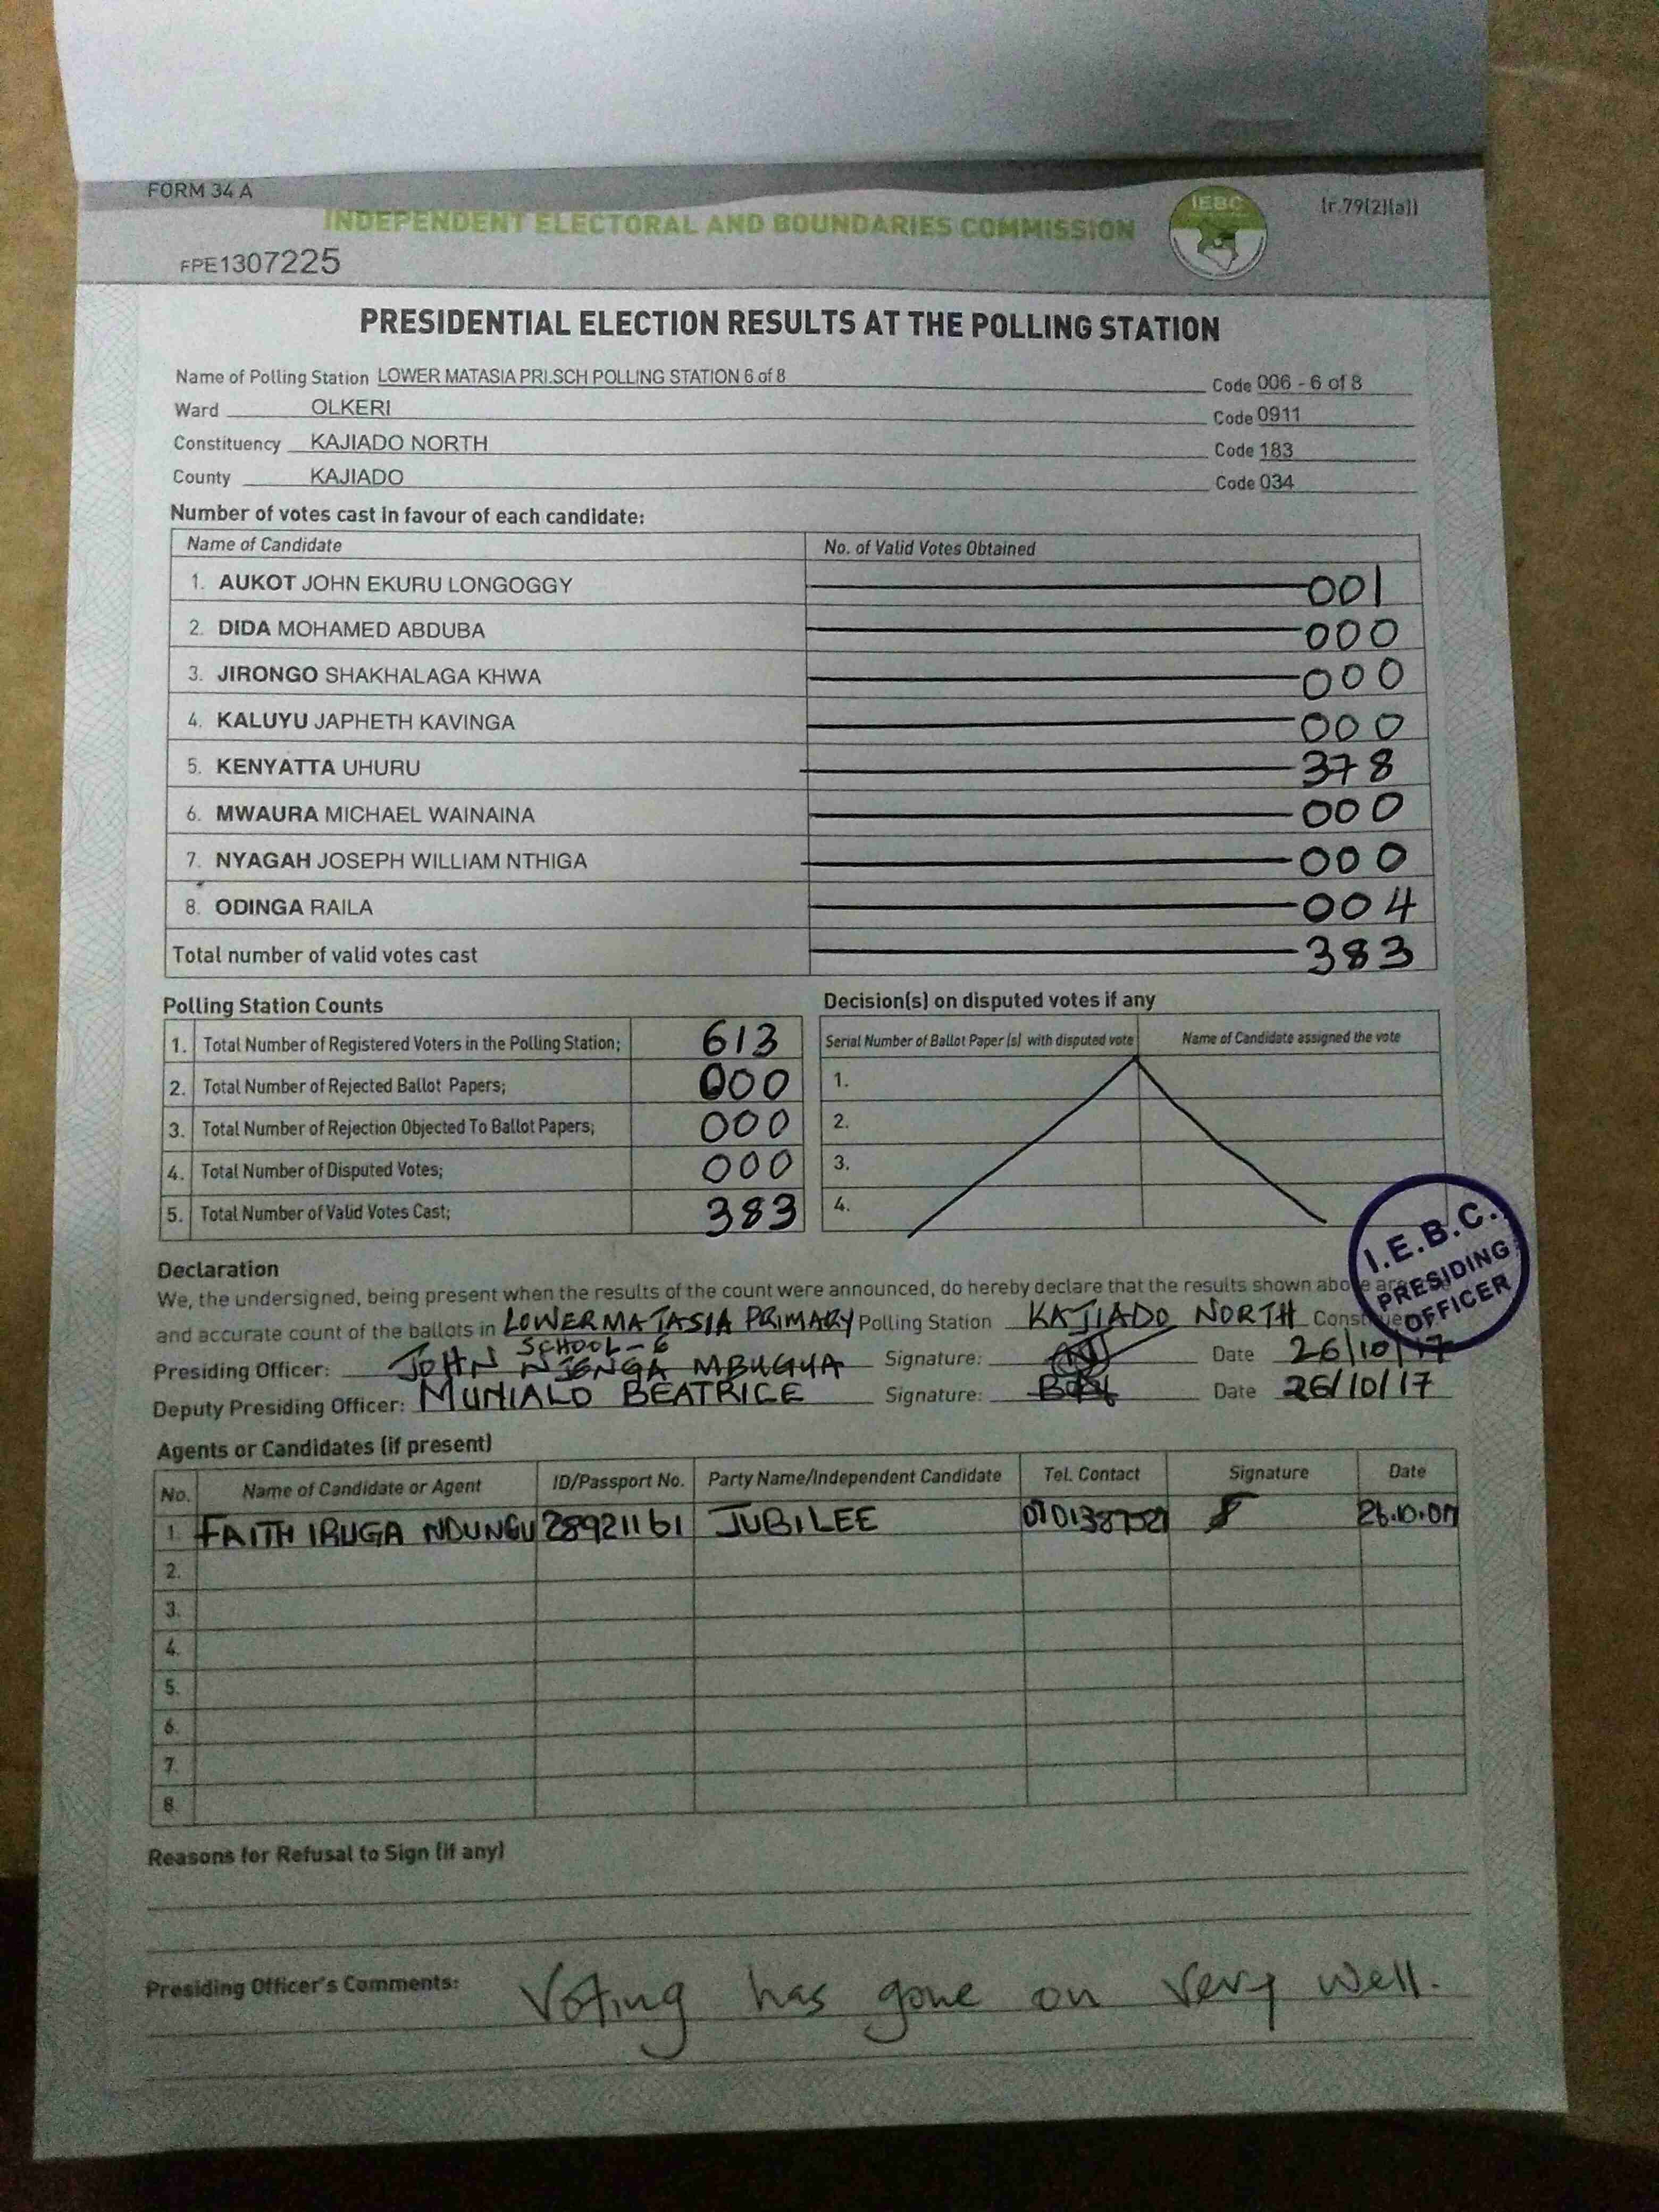 FORM 34 A
INDEPENDENT ELECTORAL AND BOUNDARIES COMMISSION
IEBC
(r.79(2)(a))
FPE1307225
PRESIDENTIAL ELECTION RESULTS AT THE POLLING STATION
Name of Polling Station LOWER MATASIA PRI.SCH POLLING STATION 6 of 8 Code 006 - 6 of 8
Ward OLKERI Code 0911
Constituency KAJIADO NORTH Code 183
County KAJIADO Code 034
Number of votes cast in favour of each candidate:
Name of Candidate No. of Valid Votes Obtained
1. AUKOT JOHN EKURU LONGOGGY 001
2. DIDA MOHAMED ABDUBA 000
3. JIRONGO SHAKHALAGA KHWA 000
4. KALUYU JAPHETH KAVINGA 000
5. KENYATTA UHURU 378
6. MWAURA MICHAEL WAINAINA 000
7. NYAGAH JOSEPH WILLIAM NTHIGA 000
8. ODINGA RAILA 004
Total number of valid votes cast 383
Polling Station Counts
1. Total Number of Registered Voters in the Polling Station; 613
2. Total Number of Rejected Ballot Papers; 000
3. Total Number of Rejection Objected To Ballot Papers; 000
4. Total Number of Disputed Votes; 000
5. Total Number of Valid Votes Cast; 383
Decision(s) on disputed votes if any
Serial Number of Ballot Paper (s) with disputed vote Name of Candidate assigned the vote
1.
2.
3.
4.
I.E.B.C.
PRESIDING
OFFICER
Declaration
We, the undersigned, being present when the results of the count were announced, do hereby declare that the results shown above are
and accurate count of the ballots in LOWER MATASIA PRIMARY Polling Station KAJIADO NORTH
SCHOOL - 6
Presiding Officer: JOHN NJENGA MBUGUA Signature: Date 26/10/17
Deputy Presiding Officer: MUNIALO BEATRICE Signature: Date 26/10/17
Agents or Candidates (if present)
No. Name of Candidate or Agent ID/Passport No. Party Name/Independent Candidate Tel. Contact Signature Date
1. FAITH IRUGA NDUNGU 28921161 JUBILEE
2.
3.
4.
5.
6.
7.
8.
Reasons for Refusal to Sign (if any)
Presiding Officer's Comments: Voting has gone on very well.